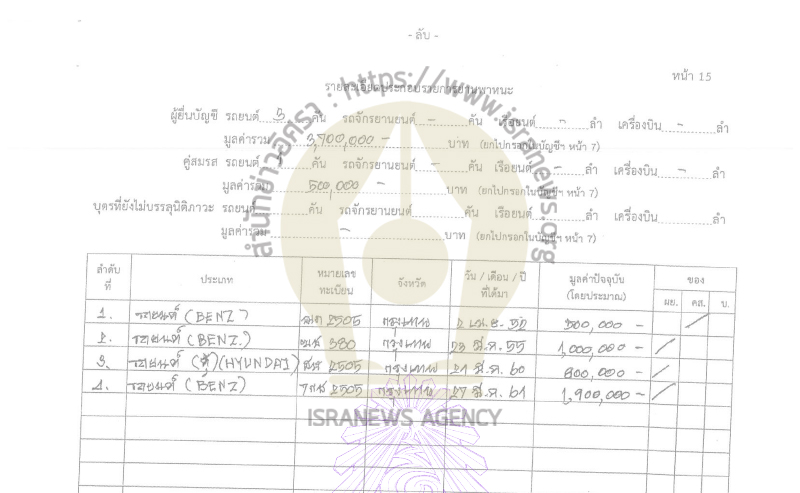 - ลับ -
หน้า 15
รายละเอียดประกอบรายการยานพาหนะ
ผู้ยื่นบัญชี รถยนต์ 3 คัน รถจักรยานยนต์ - คัน เรือยนต์ - ลำ เครื่องบิน - ลำ
มูลค่ารวม 3,700,000 - บาท (ยกไปกรอกในบัญชีฯ หน้า 7)
คู่สมรส รถยนต์ 1 คัน รถจักรยานยนต์ - คัน เรือยนต์ - ลำ เครื่องบิน - ลำ
มูลค่ารวม 500,000 - บาท (ยกไปกรอกในบัญชีฯ หน้า 7)
บุตรที่ยังไม่บรรลุนิติภาวะ รถยนต์ คัน รถจักรยานยนต์ คัน เรือยนต์ ลำ เครื่องบิน ลำ
มูลค่ารวม - บาท (ยกไปกรอกในบัญชีฯ หน้า 7)
ลำดับที่ ประเภท หมายเลขทะเบียน จังหวัด วัน / เดือน / ปี ที่ได้มา มูลค่าปัจจุบัน (โดยประมาณ) ของ
ผย. คส. บ.
1. รถยนต์ (BENZ) 2505 กรุงเทพ 2 เม.ย. 52 500,000 -
2. รถยนต์ (BENZ) 380 กรุงเทพ 23 มี.ค. 55 1,000,000 -
3. รถยนต์ (ตู้) (HYUNDAI) 2505 กรุงเทพ 21 มี.ค. 60 800,000 -
4. รถยนต์ (BENZ) 2505 กรุงเทพ 27 มี.ค. 61 1,900,000 -
สำนักข่าวอิศรา : https://www.isranews.org
ISRANEWS AGENCY